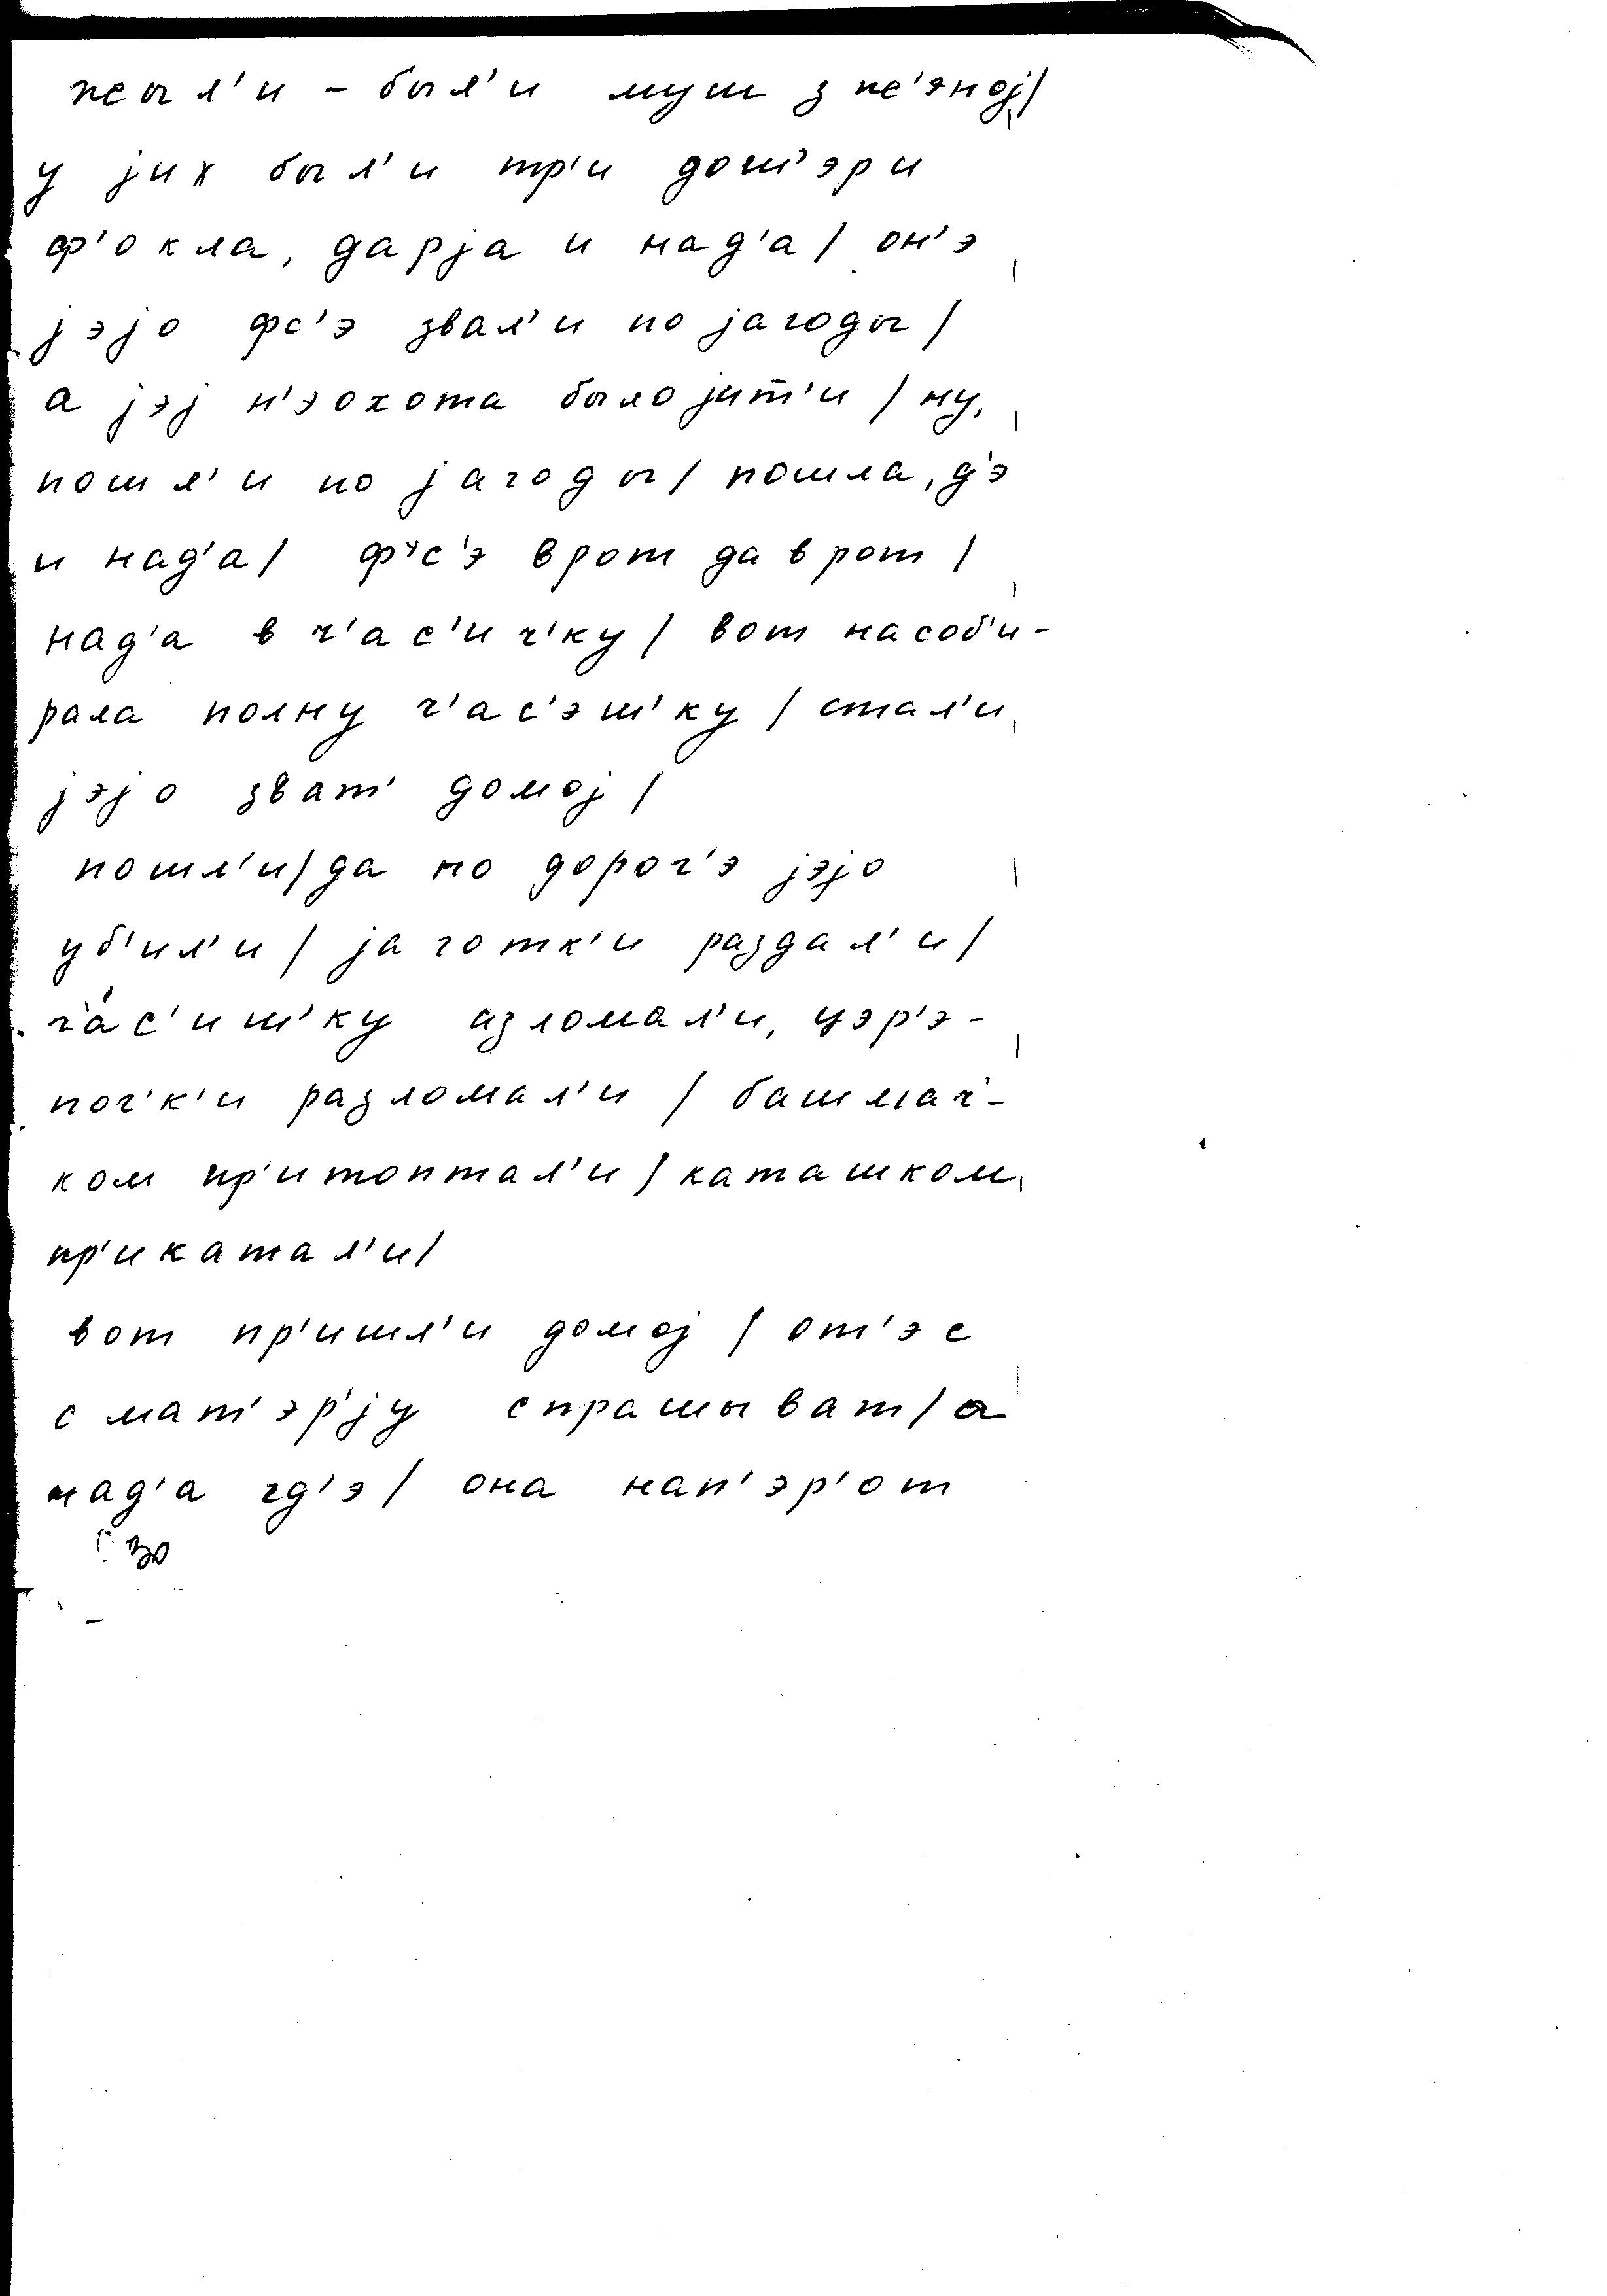 жыл'и - был'и муш з ж'эној/
у јих был'и тр'и дош'эри
ф'окла, дарја и над'а / он'э
јэјо фс'э звал'и по јагоды /
а јэј н'эохота было јит'и / ну,
пошл'и по јагоды / пошла, д'э
и над'а / ф'с'э врот да врот /
над'а в ч'ас'ич'ку / вот насоб'и-
рала полну ч'ас'эш'ку / стал'и
јэјо зват' домој /
пошл'и / да по дорог'э јэјо
уб'ил'и / јаготк'и раздал'и /
ч'ас'иш'ку изломал'и, цэр'э-
поч'к'и разломал'и / башмач'-
ком пр'итоптал'и / каташком
пр'икатал'и /
вот пр'ишл'и домој / от'эс
с мат'эр'ју спрашыват / а
над'а гд'э / она нап'эр'от